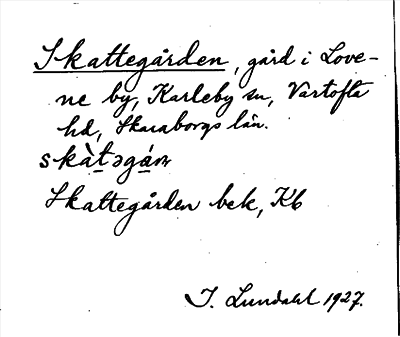 Skattegården, gård i Love-
ne by, Karleby sn, Vartofta
hd, Skaraborgs län.
skàtəgán
Skattegården bek, Kb
I. Lundahl 1927.